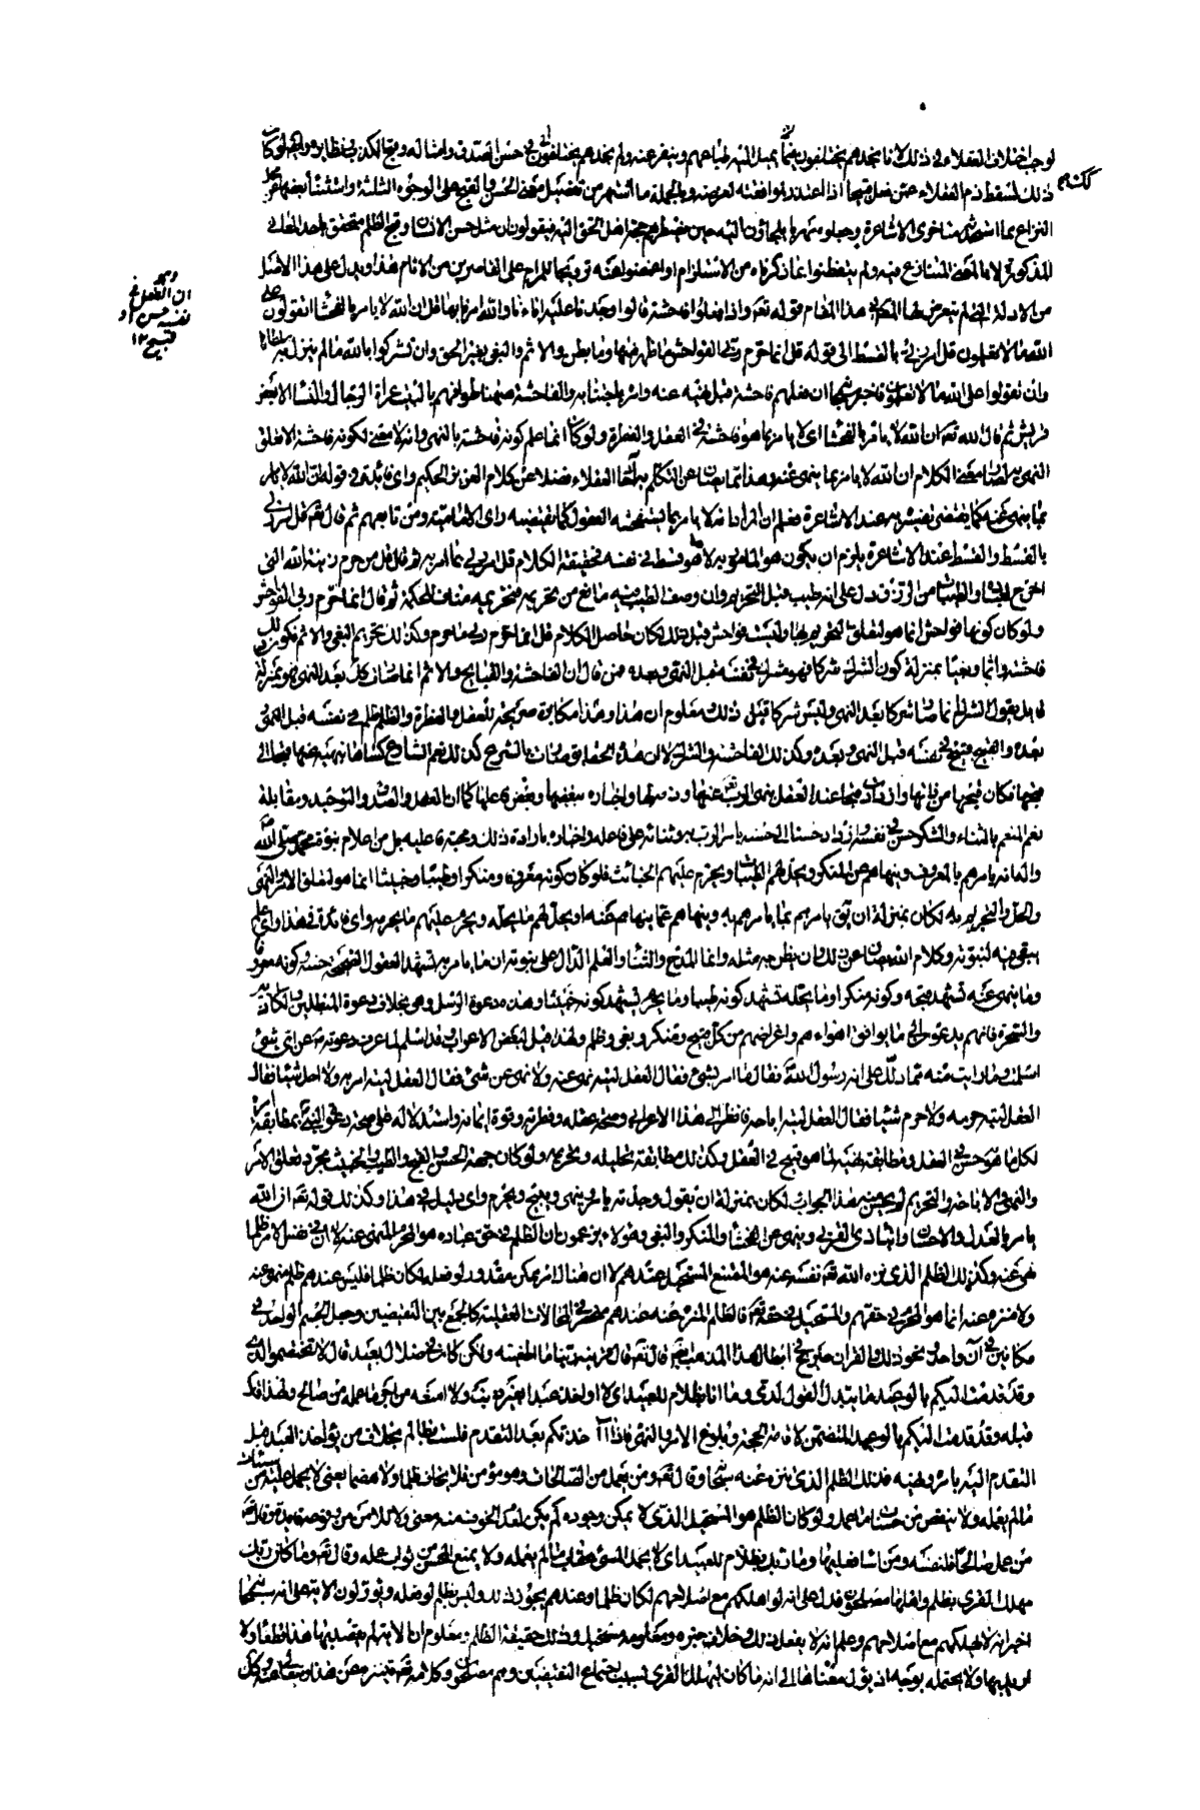 لوجب اختلاف العقلاء في ذلك لانا نجدهم يختلفون فيما يميل اليه طباعهم وينفر عنه ولم نجدهم يختلفون في حسن الصدق وامثاله وقبح الكذب ونظايره وايضا لو كان
ذلك لسقط ذم العقلاء عمن فعل قبيحا اذا اعتذر بموافقته لغرضه وبالجملة ما اشتهر من تفصيل معنى الحسن والقبح على الوجوه الثلثة واستثناء بعضها عن محل
النزاع مما استحدثه متاخرى الاشاعرة وجعلوه مهربا يلجاؤن اليه حين يضطرهم حجة اهل الحق اليه فيقولون ان مثل حسن الاحسان وقبح الظلم متحقق باحد المعاني
المذكورة لا بالمعنى المتنازع فيه ولم يتفطنوا بما ذكرناه من الاستلزام او اغمضوا عنه ترويجا للمرام على القاصرين من الانام هذا ويدل على هذا الاصل
من الادلة التي لم يتعرض لها المصنف في هذا المقام قوله تعالى واذا فعلوا فاحشة قالوا وجدنا عليها اباءنا والله امرنا بها قل ان الله لا يامر بالفحشاء اتقولون على
الله ما لا تعلمون قل امر ربي بالقسط الى قوله قل انما حرم ربي الفواحش ما ظهر منها وما بطن والاثم والبغي بغير الحق وان تشركوا بالله ما لم ينزل به سلطانا
وان تقولوا على الله ما لا تعلمون فاخبر سبحانه ان فعلهم فاحشة قبل نهيه عنه وامر باجتنابه والفاحشة هيهنا طوافهم بالبيت عراة الرجال والنساء الا بعض
قريش ثم قال الله تعالى ان الله لا يامر بالفحشاء اى لا يامر بما هو فاحشة في العقل والفطرة ولو كان انما علم كونه فاحشة بالنهى وانه لا معنى لكونه فاحشة الا تعلق
النهى به لصار معنى الكلام ان الله لا يامر بما ينهى عنه وهذا مما يصان عن التكلم به احاد العقلاء فضلا عن كلام العزيز الحكيم واى فايدة في قوله ان الله لا يامر
بما ينهى عنه كما يقتضى تفسيره عند الاشاعرة فعلم ان المراد انه لا يامر بما يستفحشه العقول كما يقتضيه راى الامامية ومن تابعهم ثم قال تعالى قل امر ربي
بالقسط والقسط عند الاشاعرة يلزم ان يكون هو المامور به لا ما هو قسط في نفسه فحقيقة الكلام قل امر ربي بما امر به ثم قال قل من حرم زينة الله التي
اخرج لعباده والطيبات من الرزق دل على انه طيب قبل التحريم وان وصف الطيب فيه مانع من تحريمه فتحريمه مناف للحكمة ثم قال انما حرم ربي الفواحش
ولو كان كونها فواحش انما هو لتعلق التحريم بها وليست فواحش قبل ذلك لكان حاصل الكلام قل انما حرم ربي ما حرم وكذلك تحريم البغي والاثم فكون ذلك
فاحشة واثما وبغيا بمنزلة كون الشرك شركا فهو شرك في نفسه قبل النهى وبعده فمن قال ان الفاحشة والقبايح والاثم انما صارت كذلك بعد النهى فهو بمنزلة
قايل يقول الشرك انما صار شركا بعد النهى وليس شركا قبل ذلك ومعلوم ان هذا وهذا مكابرة صريحة للعقل والفطرة والظلم ظلم في نفسه قبل النهى
بعده والقبيح قبيح في نفسه قبل النهى وبعده وكذلك الفاحشة والشرك لا ان هذه الحقايق صارت بالشرع كذلك نعم الشارع كساها بنهيه عنها قبحا الى
قبحها فكان قبحها من ذاتها وازدادت قبحا عند العقل بنهى الرب تعالى عنها وذمه لها واخباره ببغضها وبغض فاعلها كما ان العدل والصدق والتوحيد ومقابلة
نعم المنعم بالثناء والشكر حسن في نفسه وازداد حسنا الى حسنه بامر الرب به وثنائه على فاعله واخباره بارادة ذلك ومحبة فاعليه بل من اعلام نبوة محمد صلى الله عليه
واله انه يامرهم بالمعروف وينهاهم عن المنكر ويحل لهم الطيبات ويحرم عليهم الخبائث فلو كان كونه معروفا ومنكرا وطيبا وخبيثا انما هو لتعلق الامر والنهى
والحل والتحريم به لكان بمنزلة ان يق يامرهم بما يامرهم به وينهاهم عما ينهاهم عنه او يحل لهم ما يحله ويحرم عليهم ما يحرمه واى فائدة في هذا واى علم
يبقى فيه لنبوته وكلام الله يصان عن ذلك وان يظن به مثله وانما المدح والثناء والعلم الدال على نبوته ان ما يامر به تشهد العقول الصحيحة حسنه وكونه معروفا
وما ينهى عنه تشهد قبحه وكونه منكرا وما يحله تشهد كونه طيبا وما يحرمه تشهد كونه خبيثا وهذه دعوة الرسل وهو بخلاف دعوة المتغلبين والكذابين
والسحرة فانهم يدعون الى ما يوافق اهواءهم واغراضهم من كل قبيح ومنكر وبغي وظلم ولهذا قيل لبعض الاعراب وقد اسلم لما عرف دعوته عن اى شئ
اسلمت وما رايت منه مما دلك على انه رسول الله فقال ما امر بشئ فقال العقل ليته نهى عنه ولا نهى عن شئ فقال العقل ليته امر به ولا احل شيئا فقال
العقل ليته حرمه ولا حرم شيئا فقال العقل ليته اباحه فانظر الى هذا الاعرابي وصحة عقله وفطرته وقوة ايمانه واستدلاله على صحة دعوى النبي بمطابقة امره
لكل ما هو حسن في العقل ومطابقة نهيه لما هو قبيح في العقل وكذلك مطابقة تحليله وتحريمه ولو كان جهة الحسن والقبح والطيب والخبيث مجرد تعلق الامر
والنهى والاباحة والتحريم لم يحسن منه هذا الجواب لكان بمنزلة ان يقول وجدته يامر وينهى ويبيح ويحرم واى دليل في هذا وكذلك قوله تعالى ان الله
يامر بالعدل والاحسان وايتاء ذى القربى وينهى عن الفحشاء والمنكر والبغي وهؤلاء يزعمون ان الظلم في حق عباده هو المحرم المنهى عنه لا ان في نفس الامر ظلما
نهى عنه وكذلك الظلم الذى نزه الله تعالى نفسه عنه هو الممتنع المستحيل عندهم لا ان هناك امر ممكن مقدور لو فعله لكان ظلما فليس عندهم ظلم منهى عنه
ولا منزه عنه انما هو المحرم في حقهم والمستحيل في حقه تعالى فالظلم المنزه عنه عندهم منحصر في المحالات العقلية كالجمع بين النقيضين وجعل الجسم الواحد في
مكانين في آن واحد ونحو ذلك والقران صريح في ابطال هذا المذهب ايضا قال تعالى قال قرينه ربنا ما اطغيته ولكن كان في ضلال بعيد قال لا تختصموا لدى
وقد قدمت اليكم بالوعيد ما يبدل القول لدى وما انا بظلام للعبيد اى لا اواخذ عبدا بغير ذنب ولا امنعه من اجر ما عمله من صالح ولهذا قال
قبله وقد قدمت اليكم بالوعيد المتضمن لاقامة الحجة وبلوغ الامر والنهى فاذا آخذتكم بعد التقدم فلست بظالم بخلاف من يؤاخذ العبد قبل
التقدم اليه بامره ونهيه فذلك الظلم الذى تنزه عنه سبحانه وقال تعالى ومن يعمل من الصالحات وهو مؤمن فلا يخاف ظلما ولا هضما يعنى لا يحمل عليه من سيئات
ما لم يعمله ولا ينقص من حسنات ما عمل ولو كان الظلم هو المستحيل الذى لا يمكن وجوده لم يكن لعدم الخوف منه معنى ولا للامن من وقوعه فايدة وقال تعالى
من عمل صالحا فلنفسه ومن اساء فعليها وما ربك بظلام للعبيد اى لا يحمل المسئ عقاب ما لم يعمله ولا يمنع المحسن من ثواب عمله وقال تعالى وما كان ربك
مهلك القرى بظلم واهلها مصلحون فدل على انه لو اهلكهم مع اصلاحهم لكان ظلما وعندهم يجوز ذلك وليس بظلم لو فعله ويؤولون الاية على انه سبحانه
اخبر انه لا يهلكهم مع اصلاحهم وعلم انه لا يفعل ذلك وخلاف خبره ومعلومه مستحيل وذلك حقيقة الظلم ومعلوم ان الاية لم يقصد بها هذا قطعا ولا
اريد بها ولا تحتمله بوجه اذ يؤل معناها الى انه ما كان ليهلك القرى بسبب اجتماع النقيضين وهم مصلحون وكلامه تعالى يتنزه عن هذا
وهو
ان الفعل في
نفسه حسن او
قبيح ١٢